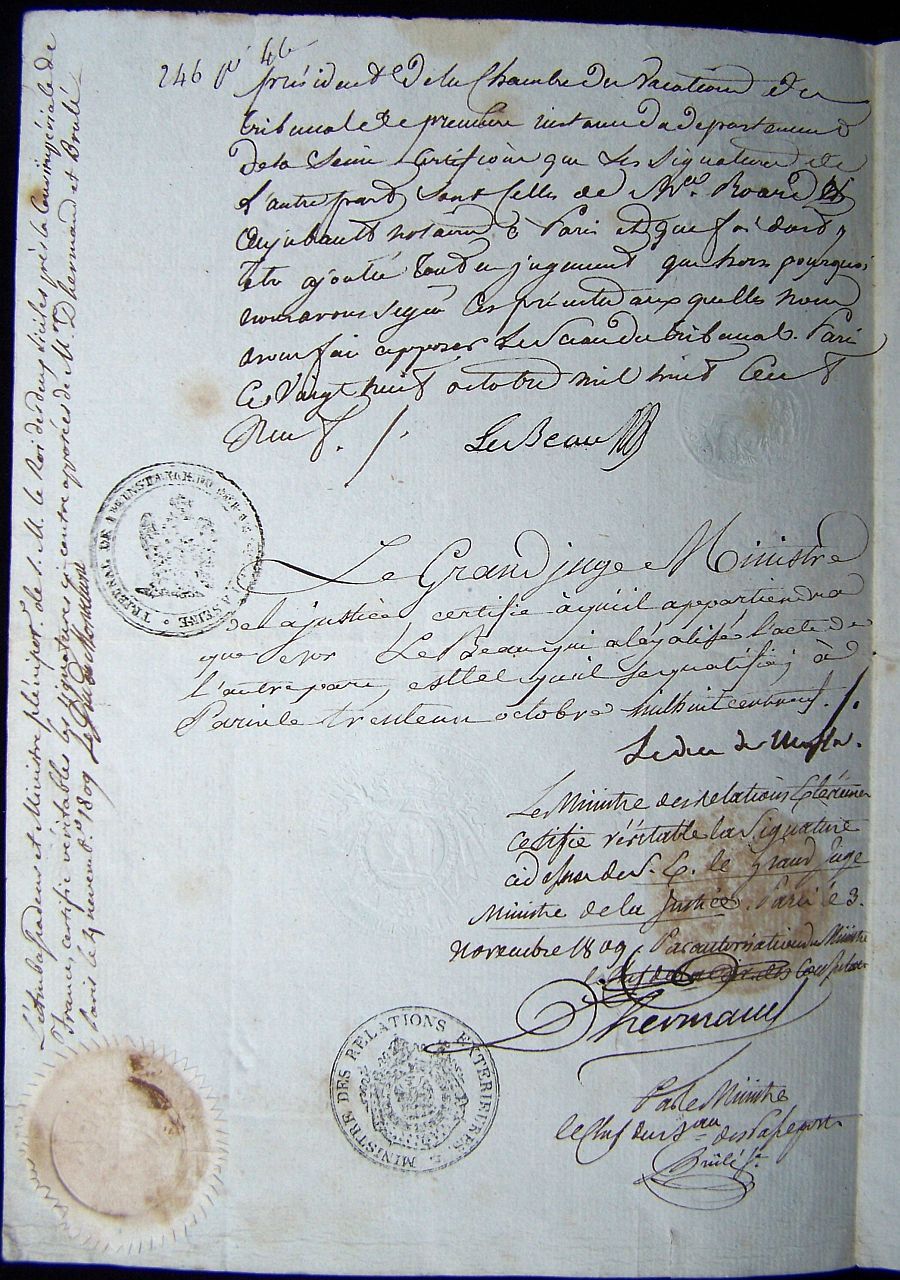 246
président de la Chambre des Vacations du
tribunal de première instance du département
de la Seine Certifions que les Signatures de
l'autre part sont Celles de Mes. Roard
notaires à Paris et que foi doit y
etre ajoutée tant en jugement que hors pourquoi
nous avons signé Ces présentes aux quelles nous
avons fai apposer Le Sceau du tribunal. Paris
Ce Vingt huit octobre mil huit Cent
Neuf. /.
LeBeau
TRIBUNAL DE INSTANCE DU DE LA SEINE
Le Grand juge Ministre
de la justice, certifie à qu'il appartiendra
que le Sr. LeBeau qui a légalisé l'acte de
l'autre part, est tel qu'il se qualifie; à
Paris le trente un octobre mil huit cent neuf. /.
Le duc de Massa.
Le Ministre des Relations Extérieures
certifie véritable la Signature
ci dessus de S. E. le Grand Juge
Ministre de la Justice. Paris le 3.
Novembre 1809. Par autorisation du Ministre
Dhermand
MINISTRE DES RELATIONS EXTERIEURES
Par le Ministre
le Chef du Bau des Passeports
Brulé
L'Ambassadeur et Ministre plénipot. de S. M. le Roi des deux Siciles près la Cour impériale de
France, certifie véritables les signatures ci contre apposées de M.rs Dhermand et Brulé
Paris le 4 novemb. 1809